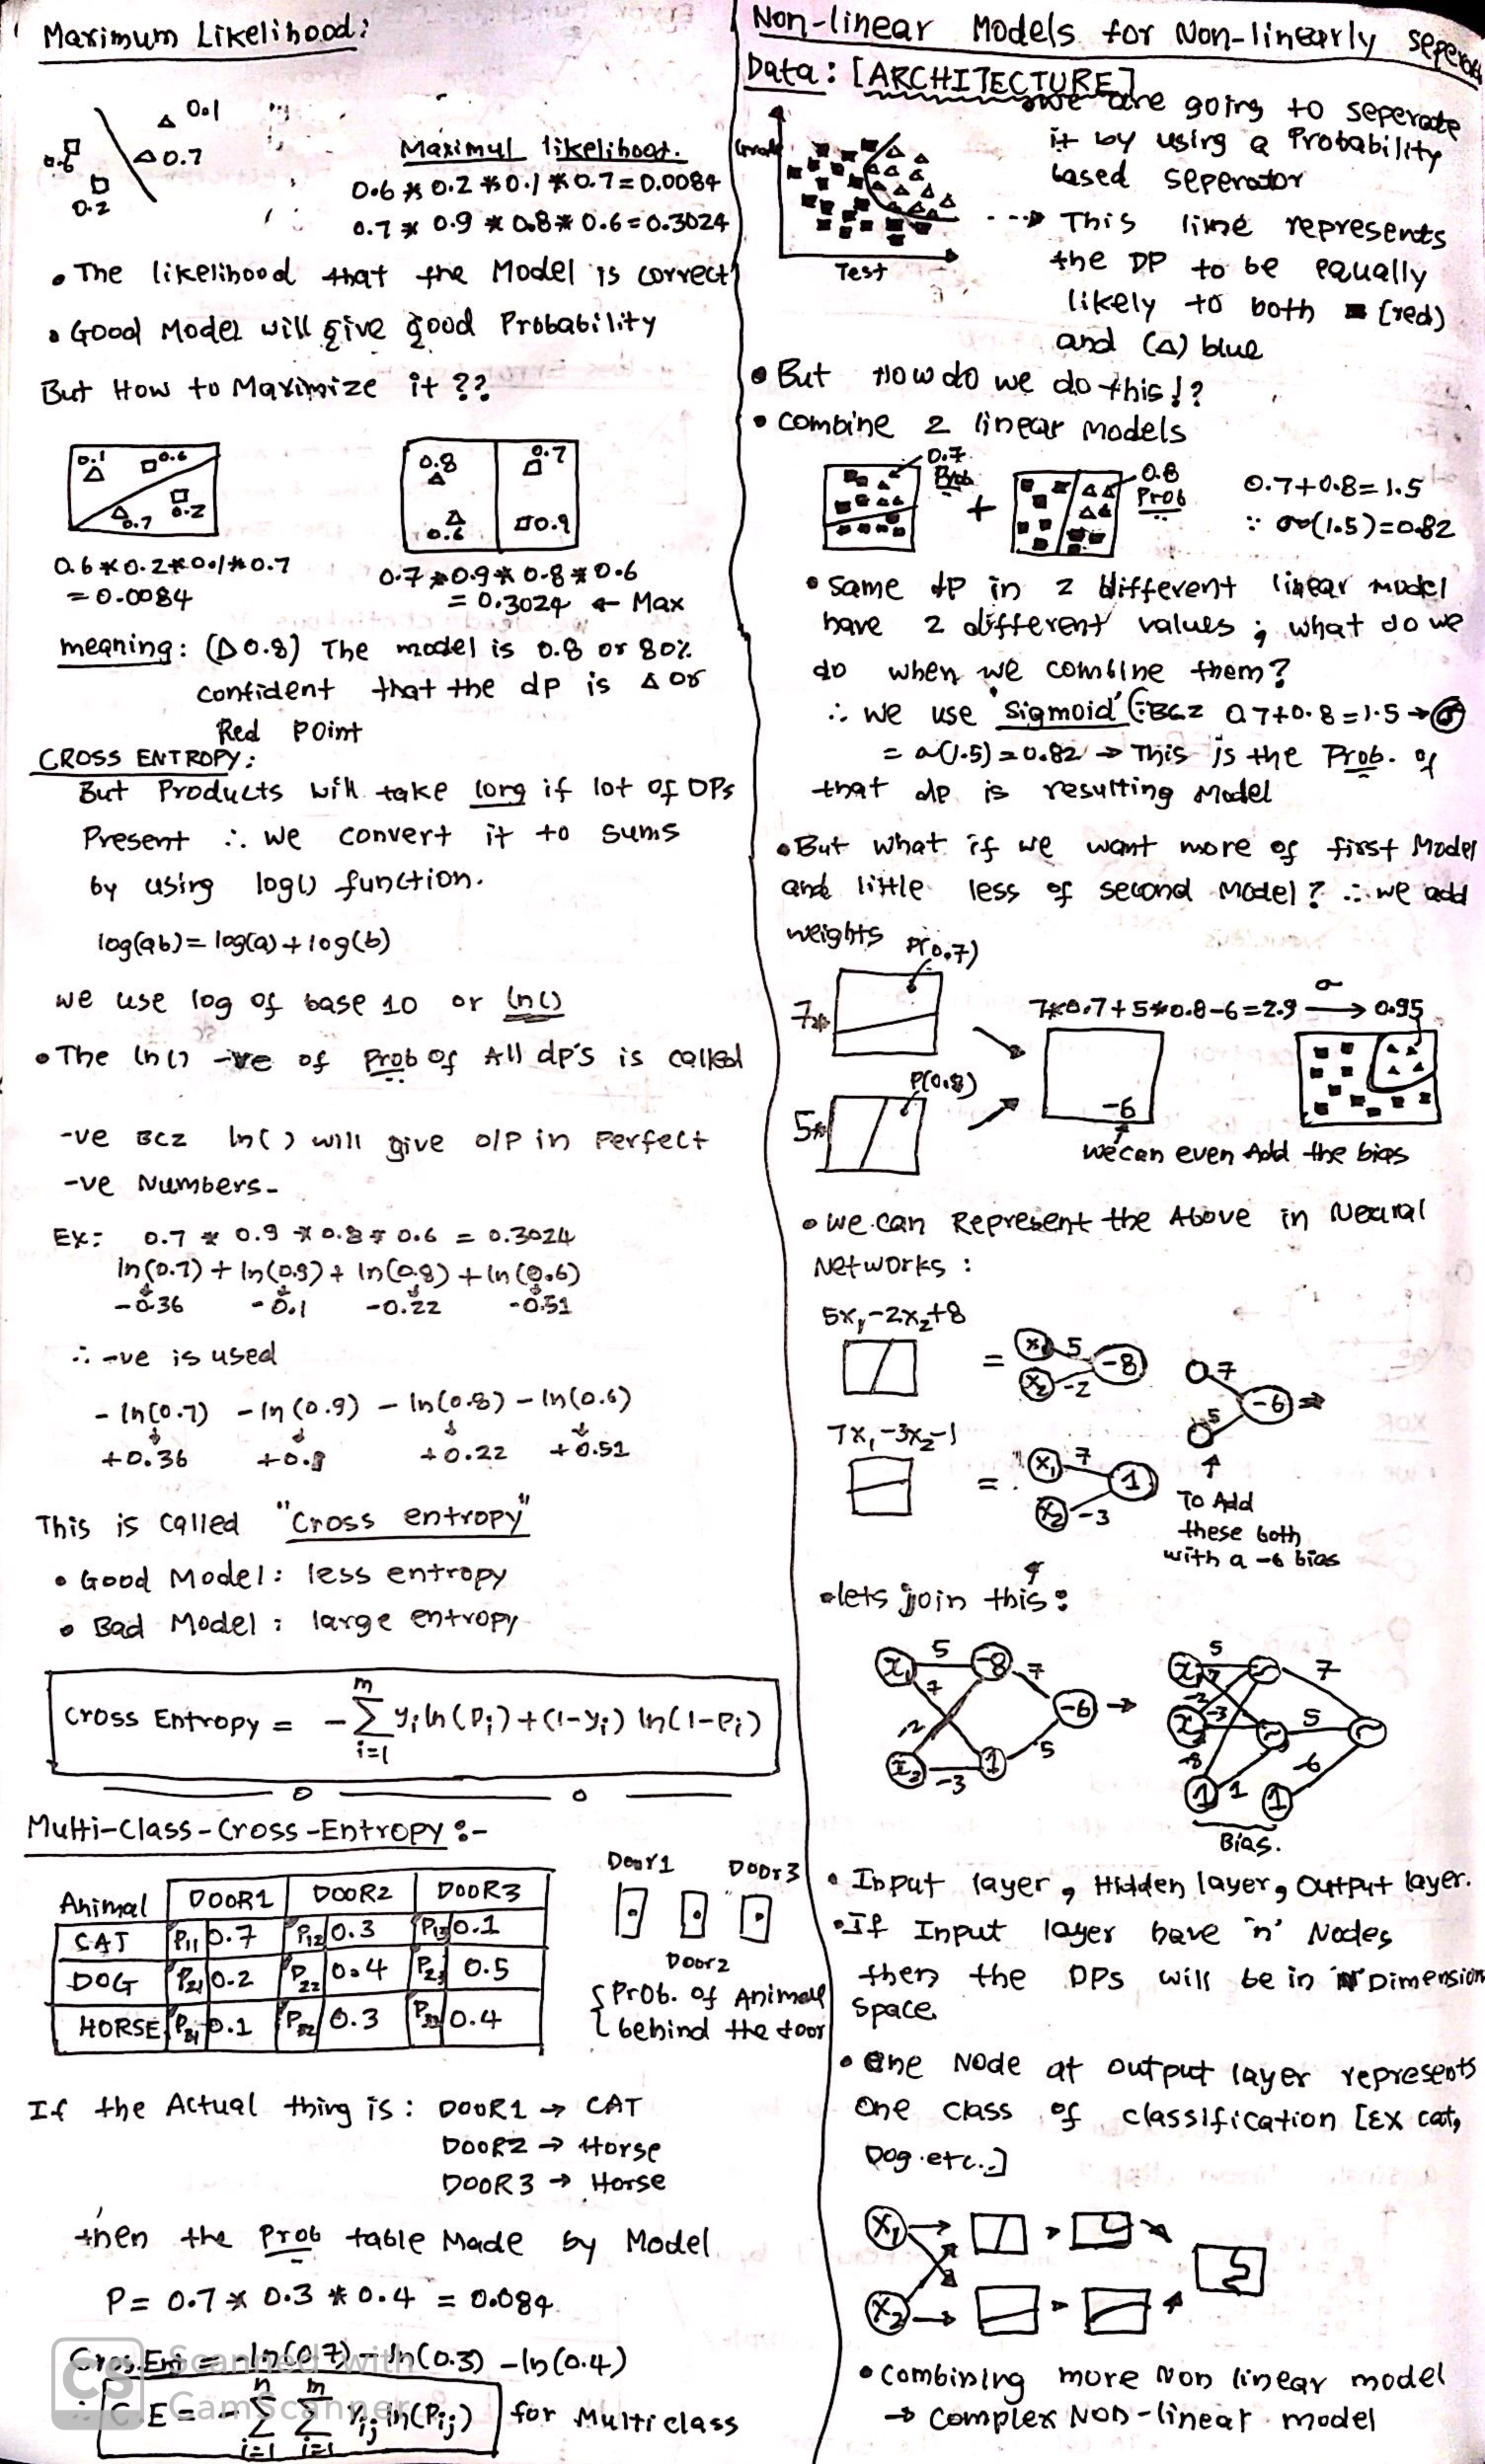 Maximum Likelihood:
0.1
0.7
0.6
0.2
Maximul likelihood.
0.6 * 0.2 * 0.1 * 0.7 = 0.0084
0.7 * 0.9 * 0.8 * 0.6 = 0.3024
• The likelihood that the Model is correct
• Good Model will give good Probability
But How to Maximize it ??
0.1 0.6
0.7 0.2
0.8 0.7
0.6 0.9
0.6 * 0.2 * 0.1 * 0.7
= 0.0084
0.7 * 0.9 * 0.8 * 0.6
= 0.3024 ← Max
meaning: (△ 0.8) The model is 0.8 or 80%
confident that the dp is △ or
Red Point
CROSS ENTROPY:
But Products will take long if lot of DPs
Present ∴ we convert it to sums
by using log() function.
log(ab) = log(a) + log(b)
we use log of base 10 or ln()
• The ln() -ve of Prob of All dp's is called
-ve Bcz ln() will give o/p in Perfect
-ve Numbers.
Ex: 0.7 * 0.9 * 0.8 * 0.6 = 0.3024
ln(0.7) + ln(0.9) + ln(0.8) + ln(0.6)
-0.36 -0.1 -0.22 -0.51
∴ -ve is used
- ln(0.7) - ln(0.9) - ln(0.8) - ln(0.6)
+0.36 +0.1 +0.22 +0.51
This is called "Cross entropy"
• Good Model: less entropy
• Bad Model: large entropy
Cross Entropy = - Σ yi ln(Pi) + (1-yi) ln(1-Pi)
m
i=1
Multi-Class-Cross-Entropy :-
Animal DOOR1 DOOR2 DOOR3
CAT P11 0.7 P12 0.3 P13 0.1
DOG P21 0.2 P22 0.4 P23 0.5
HORSE P31 0.1 P32 0.3 P33 0.4
Door1 Door3
Door2
{ Prob. of Animal
behind the door
If the Actual thing is: DOOR1 → CAT
DOOR2 → Horse
DOOR3 → Horse
then the Prob table Made by Model
P = 0.7 * 0.3 * 0.4 = 0.084
Cros.Ent = -ln(0.7) - ln(0.3) - ln(0.4)
∴ C.E = - Σ Σ Yij ln(Pij) for Multiclass
n m
i=1 i=1
CS Scanned with
CamScanner
Non-linear Models for Non-linearly
Data: [ARCHITECTURE]
we are going to seperate
it by using a Probability
based seperator
Grade
Test
---> This line represents
the DP to be equally
likely to both ■ (red)
and (△) blue
• But How do we do this!?
• Combine 2 linear models
0.7
Prob
+
0.8
Prob
0.7+0.8=1.5
∵ σ(1.5)=0.82
• same dp in 2 different linear model
have 2 different values; what do we
do when we combine them?
∴ we use 'Sigmoid' (∵ Bcz 0.7+0.8=1.5 → σ
= σ(1.5) = 0.82 → This is the Prob. of
that dp is resulting Model
• But what if we want more of first Model
and little less of second Model? ∴ we add
weights
P(0.7)
7*
P(0.8)
5*
7*0.7+5*0.8-6=2.9 σ→ 0.95
-6
we can even Add the bias
• we can Represent the Above in Neural
Networks:
5x1-2x2+8
= x1 5 -8
x2 -2
7
-6 ⇒
5
7x1-3x2-1
= x1 7 1
x2 -3
To Add
these both
with a -6 bias
• lets join this:
x1 5 -8 7
7
-6 →
-2
x2 -3 1 5
x1 5 7
7
-2
x2 -3 5
-8 -6
1 1 1
Bias.
• Input layer, Hidden layer, Output layer.
• If Input layer have 'n' Nodes
then the DPs will be in n Dimension
space
• One Node at output layer represents
One class of classification [Ex cat,
Dog etc..]
X1
X2
• Combining more Non linear model
→ Complex Non-linear model